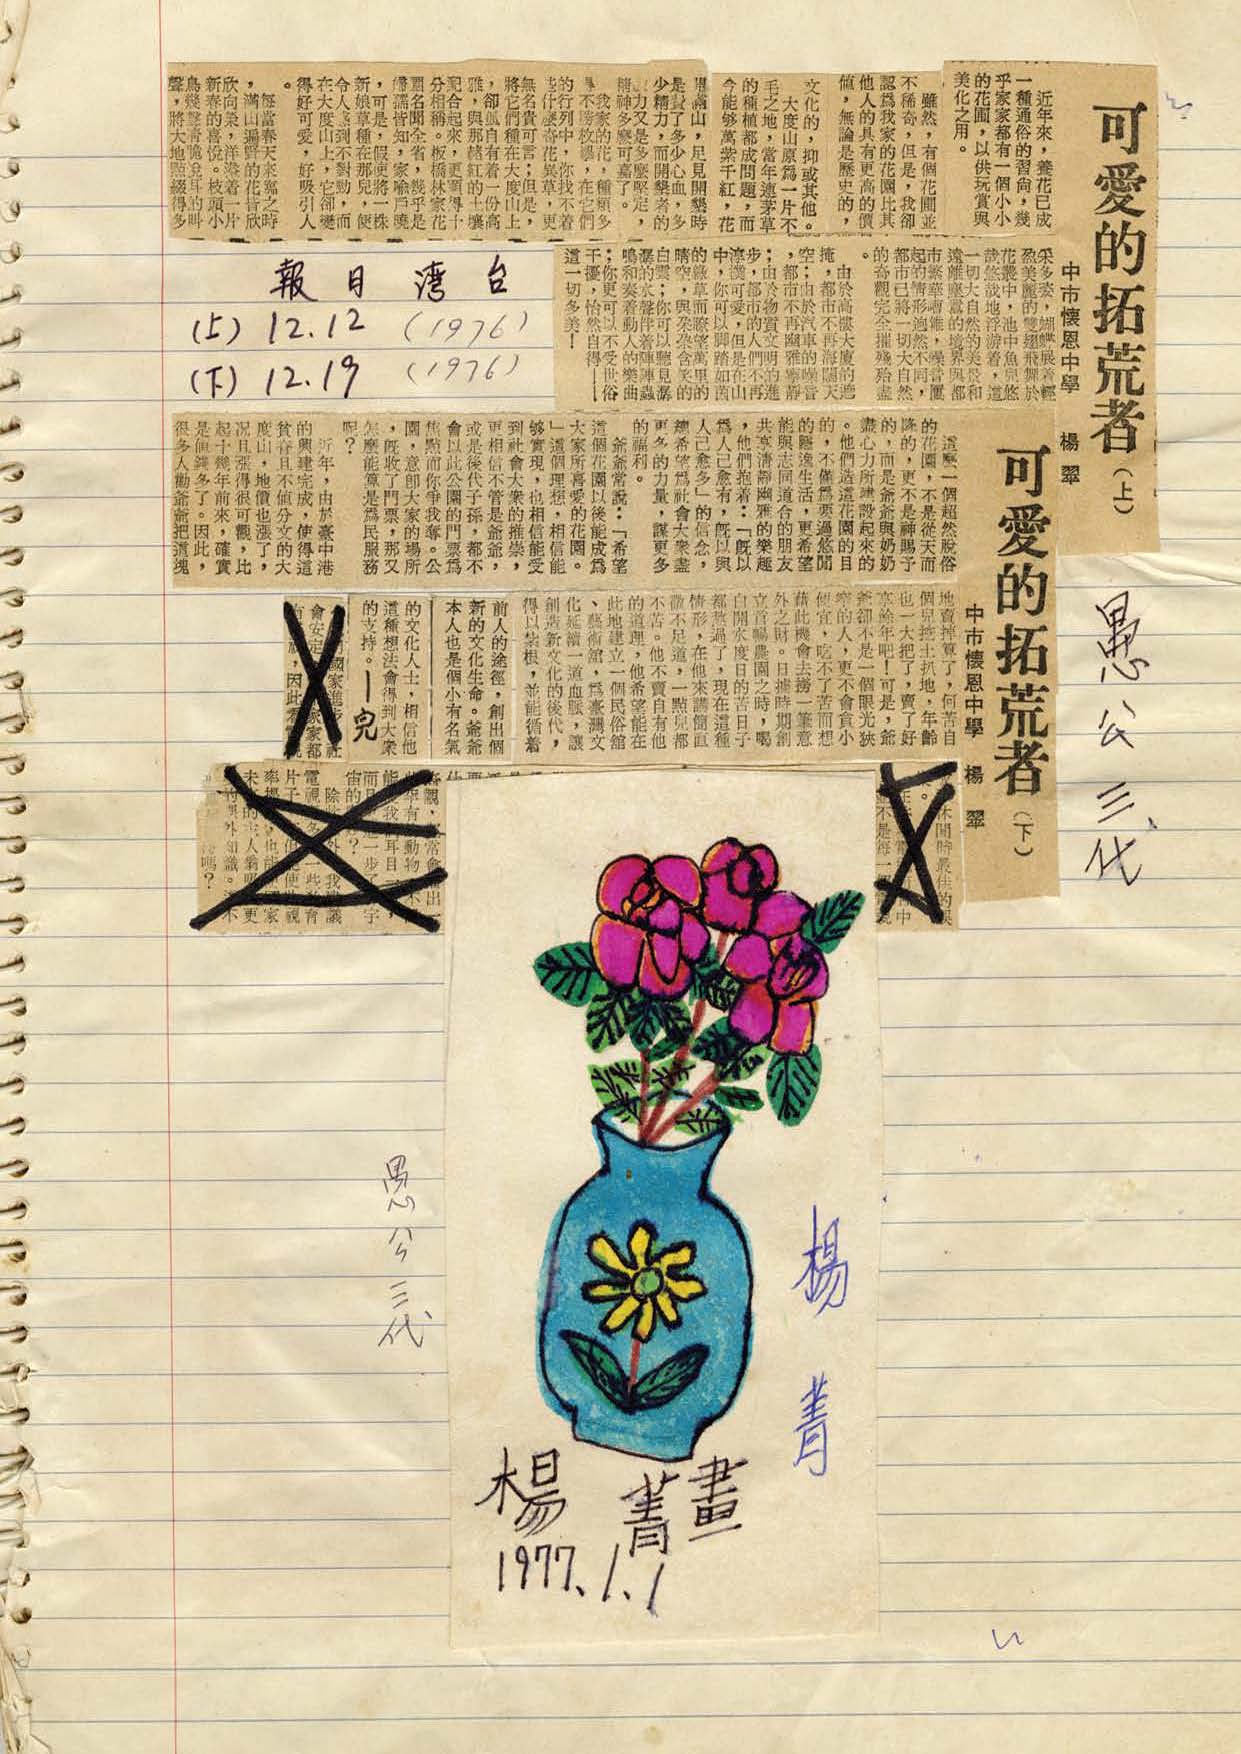 可愛的拓荒者（上）
中市懷恩中學　楊　翠
近年來，養花已成
一種通俗的習尚，幾
乎家家都有一個小小
的花圃，以供玩賞與
美化之用。
雖然，有個花圃並
不稀奇，但是，我卻
認爲我家的花園比其
他人的具有更高的價
值，無論是歷史的，
文化的，抑或其他。
大度山原爲一片不
毛之地，當年連茅草
的種植都成問題，而
今能够萬紫千紅，花
開滿山，足見開墾時
是費了多少心血，多
少精力，而開墾者的
力又是多麽堅定，
精神多麽可嘉了。
我家的花，種類多
得不勝枚舉，在它們
的行列中，你找不着
些什麽奇花異草，更
無名貴可言；但是，
將它們種在大度山上
，卻孤自有着一份高
雅，與那赭紅的土壤
配合起來，更顯得十
分相稱。板橋林家花
園名聞全省，幾乎是
婦孺皆知，家喻戶曉
，可是，假使將一株
新娘草種在那兒，便
令人感到不對勁，而
在大度山上，它卻變
得好可愛，好吸引人
。
每當春天來臨之時
，滿山遍野的花皆欣
欣向榮，洋溢着一片
新春的喜悅。枝頭小
鳥幾聲清脆悅耳的叫
聲，將大地點綴得多
采多姿，蝴蝶展着輕
盈美麗的雙翅飛舞於
花叢中，池中魚兒悠
哉悠哉地浮游着，這
一切大自然的美景和
遠離塵囂的境界與都
市繁華嘈雜，噪音屢
起的情形迥然不同，
都市已將一切大自然
的奇觀完全摧殘殆盡
。
由於高樓大廈的遮
掩，都市不再海闊天
空；由於汽車的噪音
，都市不再幽雅寧靜
；由於物質文明的進
步，都市的人們不再
淳樸可愛，但是在山
中，你可以脚踏如茵
的綠草而瞭望萬里的
晴空，與朶朶含笑的
白雲；你可以聽見潺
潺的水聲伴着陣陣蟲
鳴和奏着動人的樂曲
；你更可以不受世俗
干擾，怡然自得——
這一切多美！
台灣日報
（上）12.12（1976）
（下）12.19（1976）
可愛的拓荒者（下）
中市懷恩中學　楊　翠
這麽一個超然脫俗
的花園，不是從天而
降的，更不是神賜予
的，而是爺爺與奶奶
盡心力所建設起來的
。他們造這花園的目
的，不僅爲要過悠閒
的歸逸生活，更希望
能與志同道合的朋友
共享清靜幽雅的樂趣
，他們抱着：「既以
爲人己愈有，既以與
人己愈多」的信念，
總希望爲社會大衆盡
更多的力量，謀更多
的福利。
爺爺常說：「希望
這個花園以後能成爲
大家所喜愛的花園。
」這個理想，相信能
够實現，也相信能受
到社會大衆的推崇，
更相信不管是爺爺，
或是後代子孫，都不
會以此公園的門票爲
焦點而你爭我奪。公
園，意卽大家的場所
，既收了門票，那又
怎麽能算是爲民服務
呢？
近年，由於臺中港
的興建完成，使得這
貧脊且不値分文的大
度山，地價也漲了，
況且漲得很可觀，比
起十幾年前來，確實
是値錢多了。因此，
很多人勸爺爺把這塊
地賣掉算了，何苦自
個兒挖土扒地，年齡
也一大把了，賣了好
享餘年吧！可是，爺
爺卻不是一個眼光狹
窄的人，更不會貪小
便宜，吃不了苦而想
藉此機會去撈一筆意
外之財。日據時期創
立首陽農園之時，喝
白開水度日的苦日子
都熬過了，現在這種
情形，在他來講簡直
微不足道，一點兒都
不苦。他不賣自有他
的道理，他希望能在
此地建立一個民俗舘
、藝術舘，爲臺灣文
化延續一道血脈，讓
創造新文化的後代，
得以紮根，並能循着
前人的途徑，創出個
新的文化生命。爺爺
本人也是個小有名氣
的文化人士，相信他
這種想法會得到大衆
的支持。——完
愚公三代
愚公三代
楊菁
楊菁畫
1977.1.1